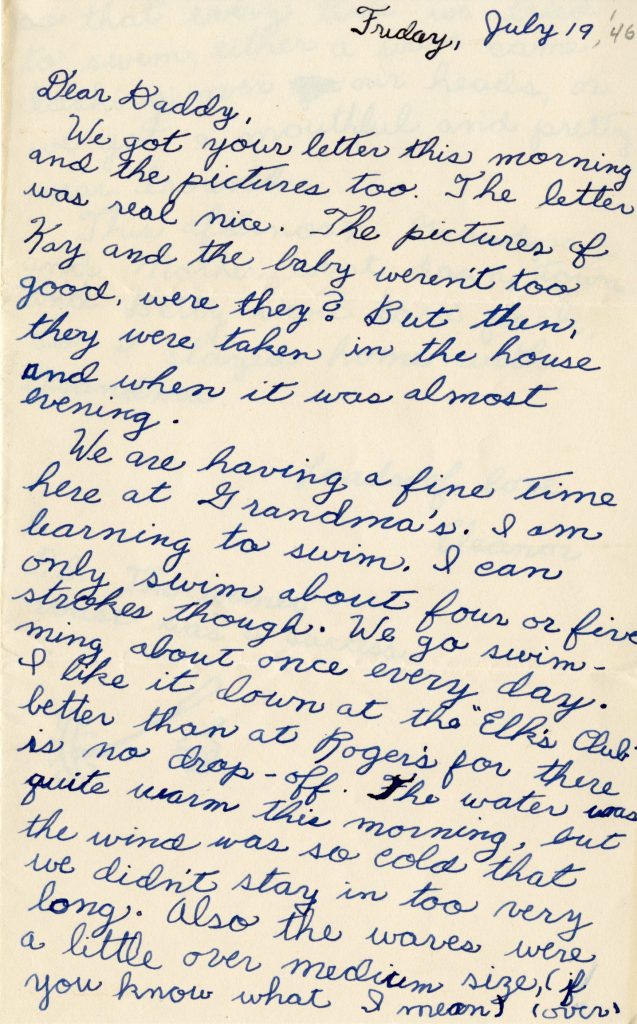 Friday, July 19, '46
Dear Daddy,
We got your letter this morning
and the pictures too. The letter
was real nice. The pictures of
Kay and the baby weren't too
good, were they? But then,
they were taken in the house
and when it was almost
evening.
We are having a fine time
here at Grandma's. I am
learning to swim. I can
only swim about four or five
strokes though. We go swim-
ming about once every day.
I like it down at the "Elk's Club"
better than at Rogers for there
is no drop-off. The water was
quite warm this morning, but
the wind was so cold that
we didn't stay in too very
long. Also the waves were
a little over medium size, (if
you know what I mean) (over)